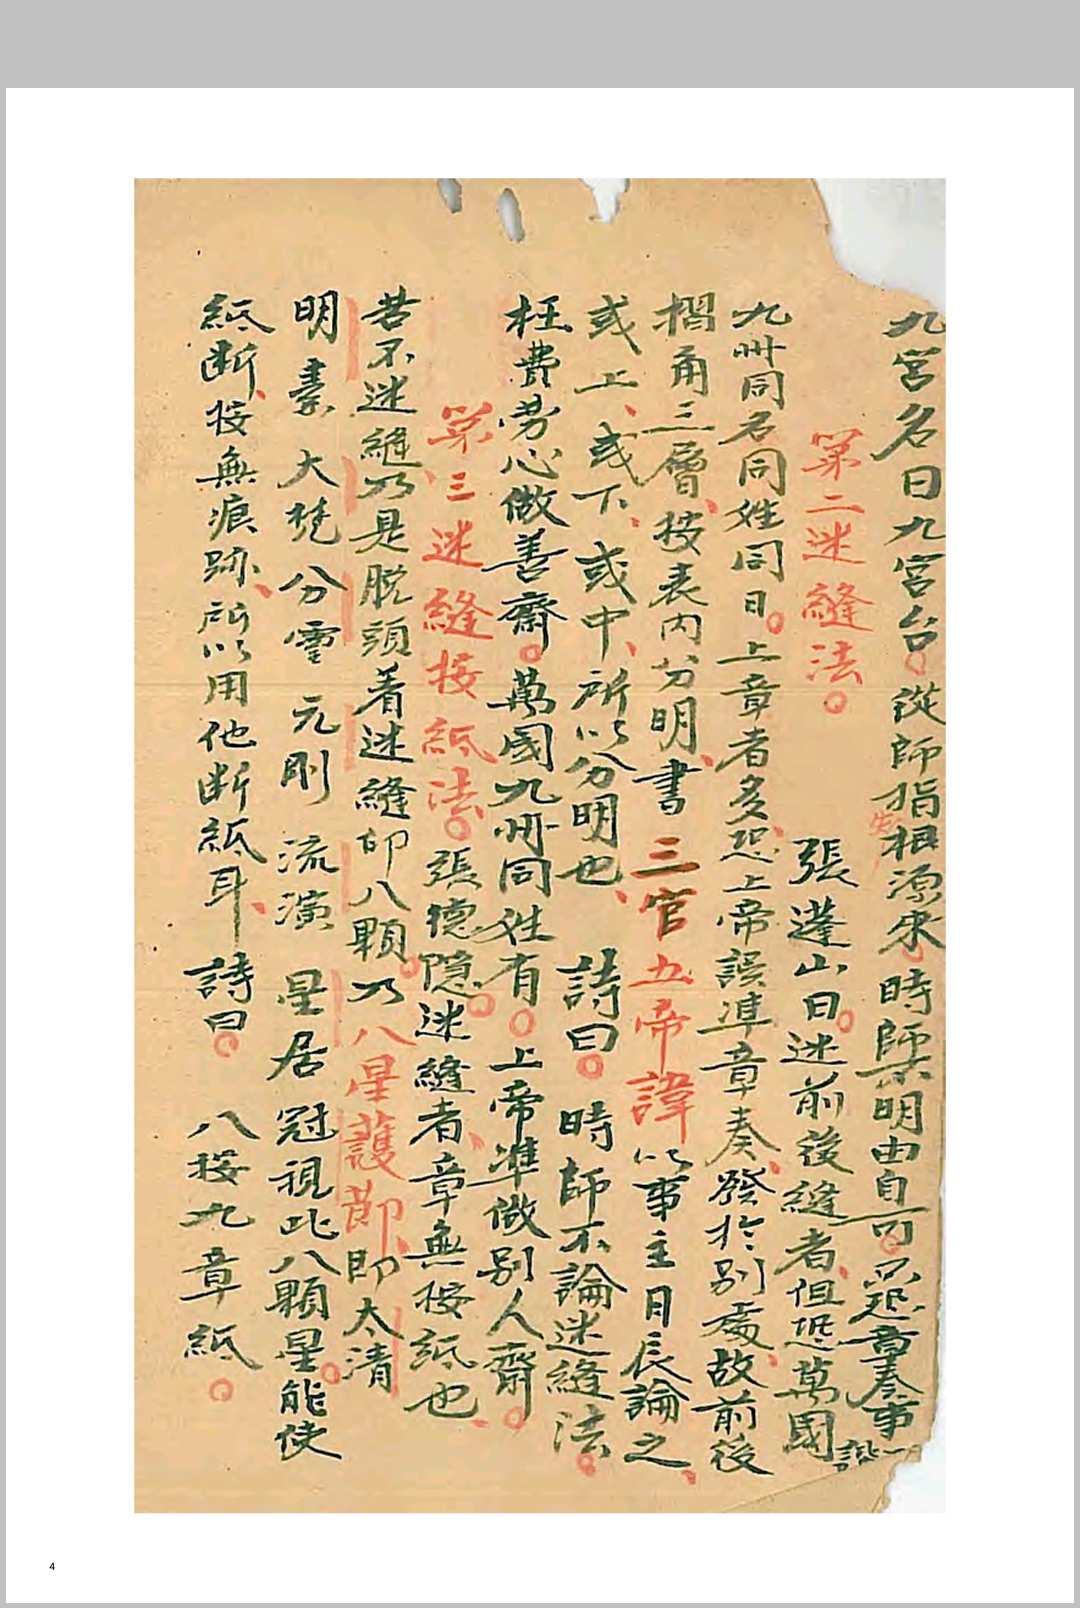 九宮名曰九宮台。從師指根源來、時師不明由自可。
第二迷縫法。
張蓬山曰。迷前後縫者、但恐萬國
九冊同名同姓同日。上章者多、恐上帝誤準章奏、發於別處、故前後
摺角三層、按表內分明、書三官五帝諱以事主月辰論之、
或上、或下、或中、所以分明也、 詩曰。 時師不論迷縫法。
枉費勞心做善齋。萬國九冊同姓有。上帝準做別人齋。
第三迷縫接紙法。張德隱。迷縫者、章無接紙也、
若不迷縫、乃是脫頭看迷縫印八顆。乃八星護節、即太清
明素 大梵 分靈 元剛 流演 星居 冠視此八顆星。能使
紙斷、接無痕跡、所以用他斷紙耳、詩曰。 八接九章紙。
4